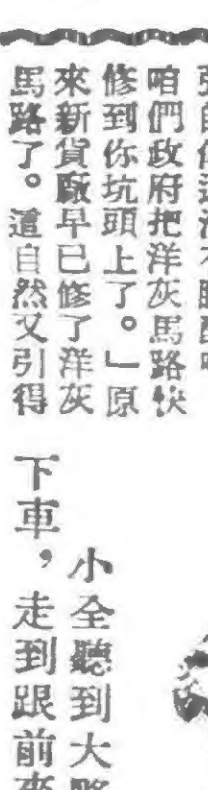 咱們政府把洋灰馬路快
修到你坑頭上了。」原
來新貨廠早已修了洋灰
馬路了。這自然又引得
小全聽到大
下車，走到跟前來